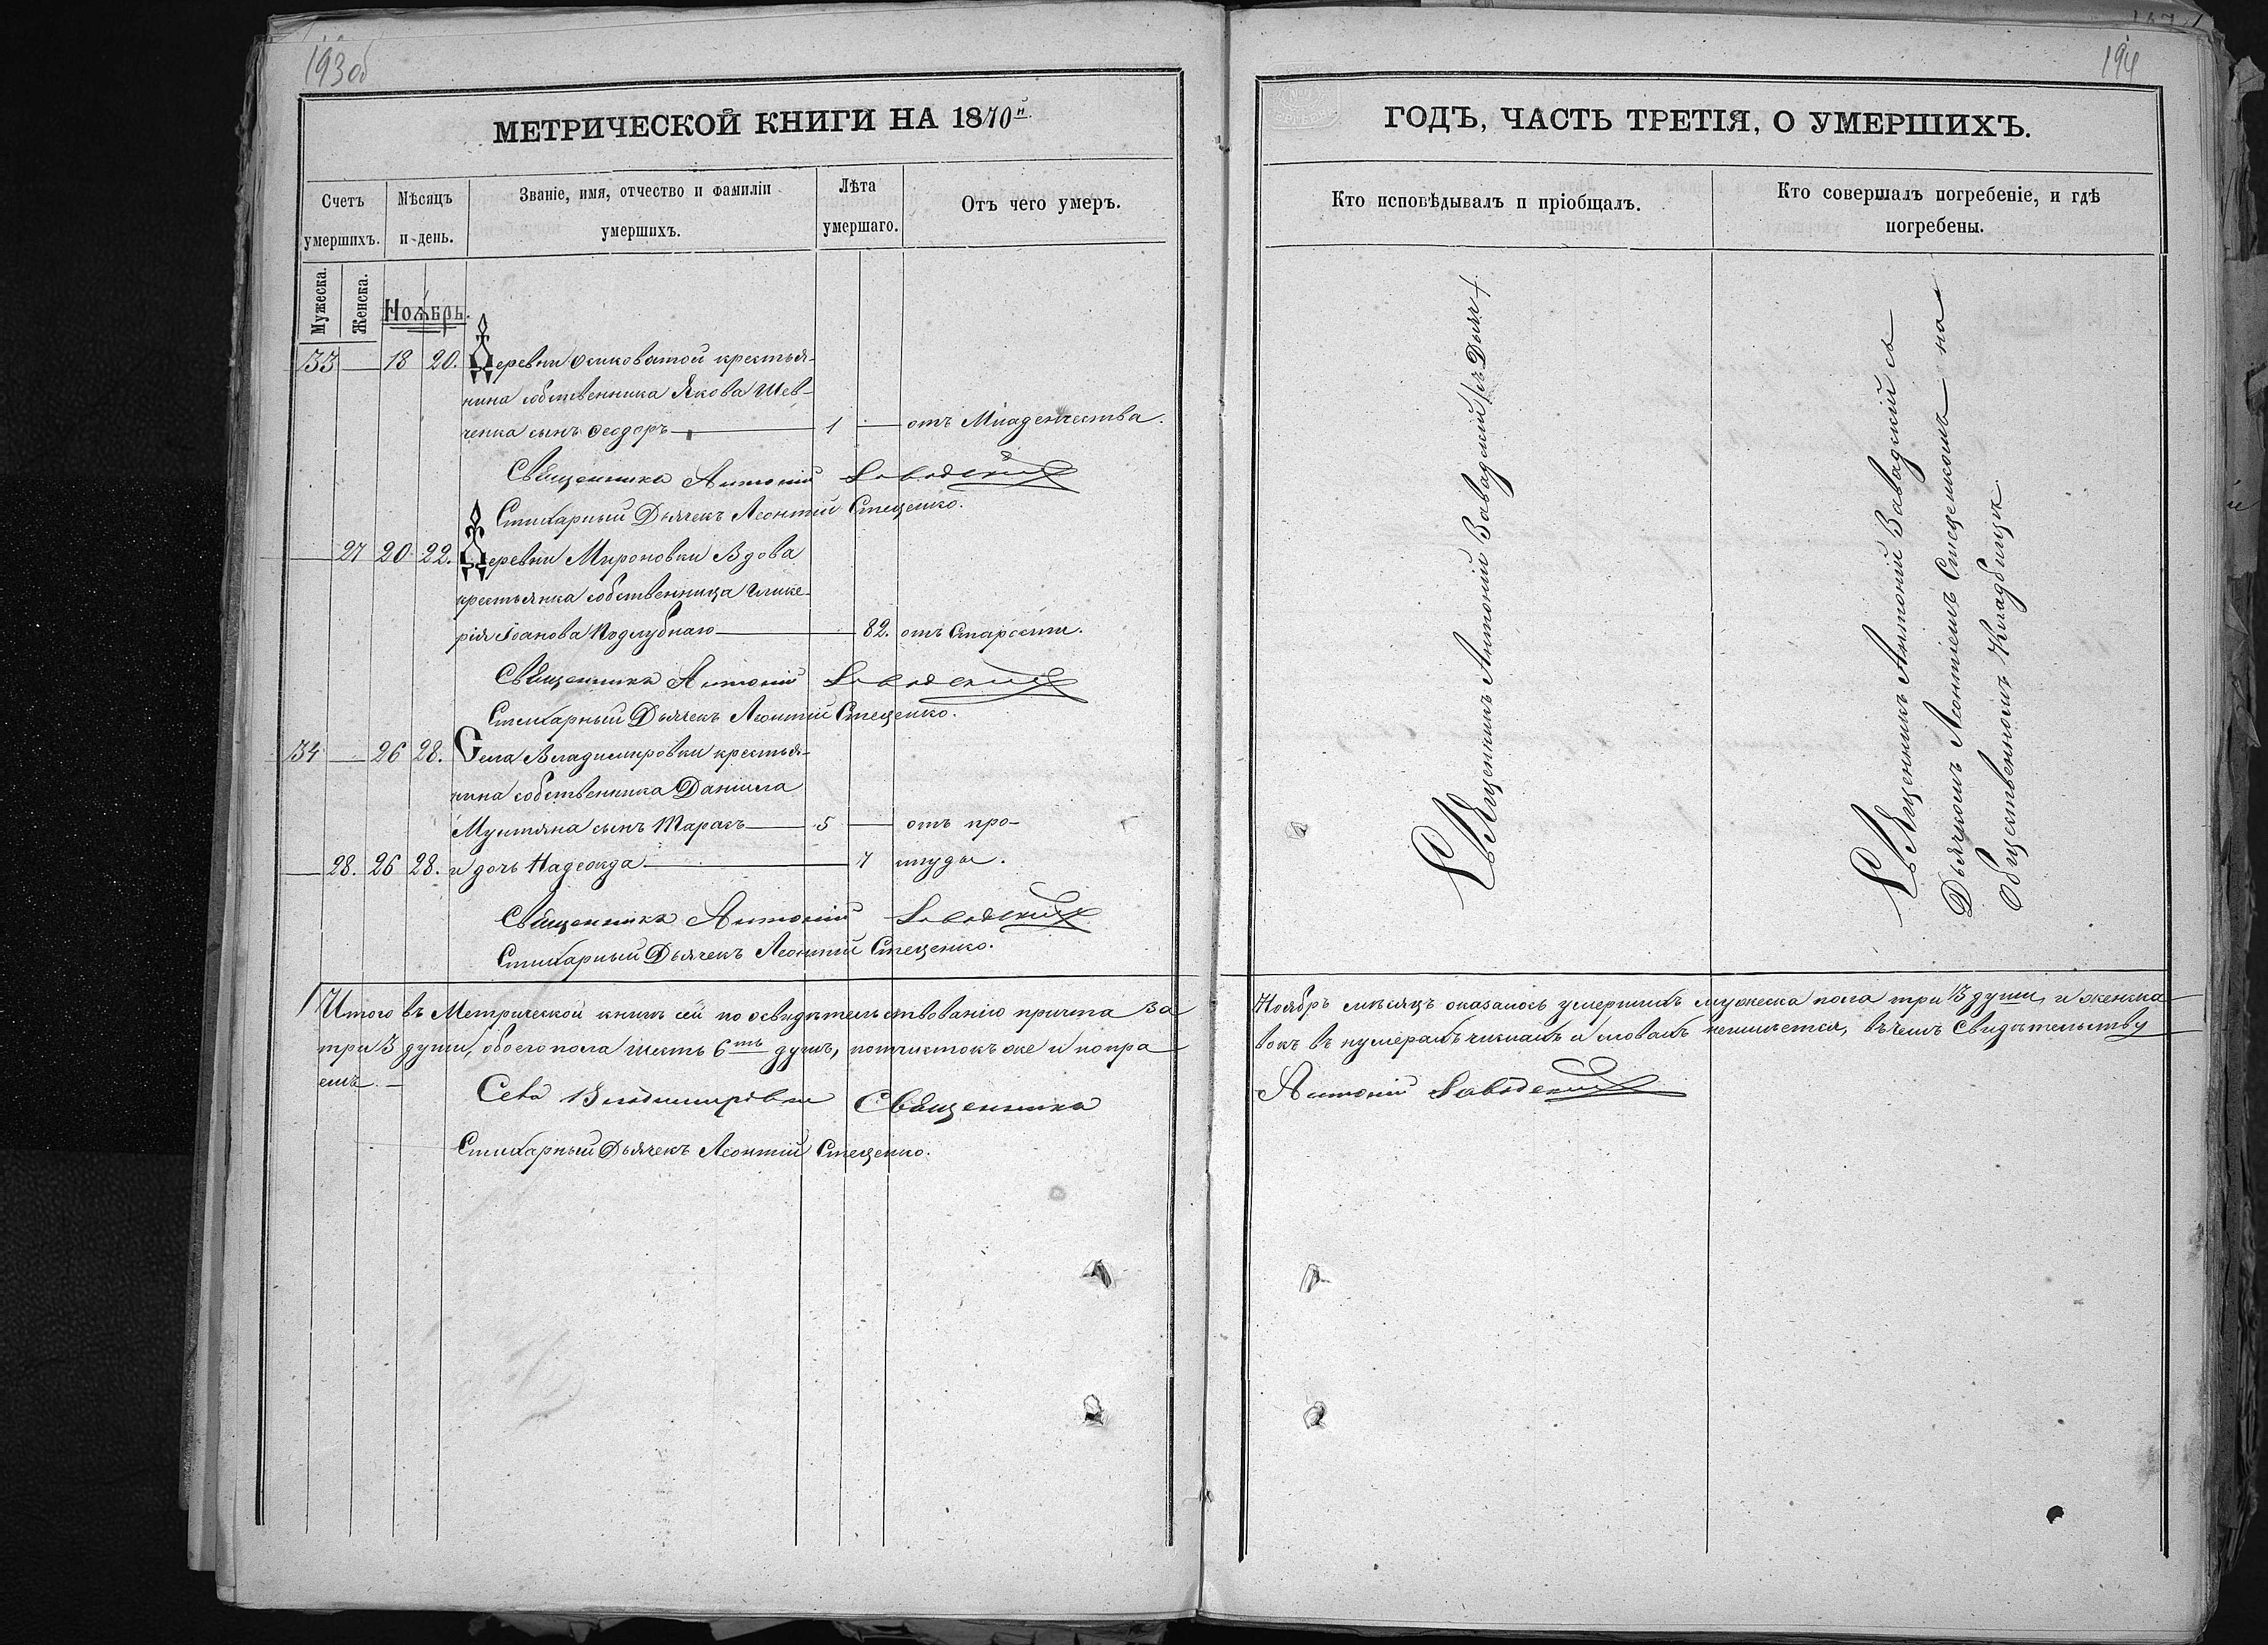 193об
МЕТРИЧЕСКОЙ КНИГИ НА 1870й
Счетъ умершихъ.
Мѣсяцъ и день.
Званіе, имя, отчество и фамиліи умершихъ.
Лѣта умершаго.
Отъ чего умеръ.
Мужеска.
Женска.
Ноябрь.
33 — 18 20. Деревни Осиковатой крестья-
нина собственника Якова Шев-
ченка сынъ Ѳеодоръ — 1 — отъ Младенчества.
Священникъ Антоній Заводскій
Стихарный Дьячекъ Леонтій Стеценко.
— 27 20 22. Деревни Мироновки Вдова
крестьянка собственница Глике-
рія Іоанова Подлубнаго — 82. отъ Старости.
Священникъ Антоній Заводскій
Стихарный Дьячекъ Леонтій Стеценко.
34 — 26 28. Села Владимировки крестья-
нина собственника Даніила
Мунтяна сынъ Тарасъ — 5 — отъ про-
— 28. 26 28. и дочь Надежда — 7 студы.
Священникъ Антоній Заводскій
Стихарный Дьячекъ Леонтій Стеценко.
Итого въ Метрической книгѣ сей по освидѣтельствованію причта за
три 3 души, обоего пола шесть 6ть душъ, подчистокъ же и попра
емъ. —
Села Владимировки Священникъ
Стихарный Дьячекъ Леонтій Стеценко.
194
ГОДЪ, ЧАСТЬ ТРЕТІЯ, О УМЕРШИХЪ.
Кто исповѣдывалъ и пріобщалъ.
Кто совершалъ погребеніе, и гдѣ
погребены.
Священникъ Антоній Завадскій съ Дьяч
Священникъ Антоній Завадскій съ
Дьячкомъ Леонтіемъ Стеценкомъ на
Общественномъ Кладбищѣ.
Ноябрь мѣсяцъ оказалось умершихъ мужеска пола три 3 души, и женска
вокъ въ нумерахъ числахъ и словахъ неимѣется, въ чемъ Свидѣтельству
Антоній Заводскій